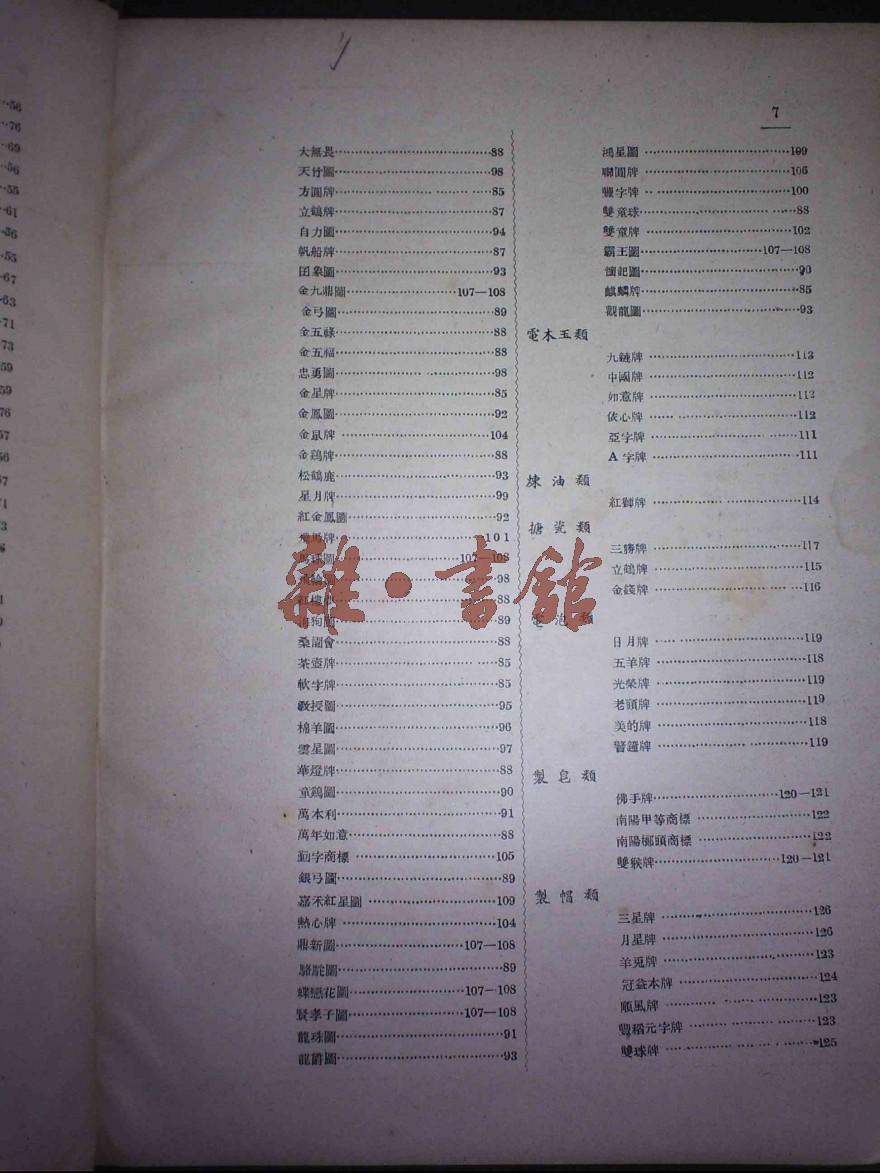 7
大無畏……88
天竹圖……98
方圓牌……85
立鶴牌……87
自力圖……94
帆船牌……87
囝象圖……93
金九鼎圖……107—108
金弓圖……89
金五祿……88
金五福……88
忠勇圖……98
金星牌……85
金鳳圖……92
金鼠牌……104
金鷄牌……88
松鶴鹿……93
星月牌……99
紅金鳳圖……92
馬牌……101
球圖……107—108
輪……98
紅樓……88
狗圖……89
桑園會……88
茶壺牌……85
軟字牌……85
教授圖……95
棉羊圖……96
雲星圖……97
華燈牌……88
童鷄圖……90
萬本利……91
萬年如意……88
勤字商標……105
銀弓圖……89
嘉禾紅星圖……109
熱心牌……104
鼎新圖……107—108
駱駝圖……89
蝶戀花圖……107—108
賢孝子圖……107—108
龍珠圖……91
龍爵圖……93
鴻星圖……109
聯圓牌……106
豐字牌……100
雙童球……88
雙童牌……102
霸王圖……107—108
懷起圖……90
麒麟牌……85
觀龍圖……93
電木玉類
九鏈牌……113
中國牌……112
如意牌……112
依心牌……112
亞字牌……111
A字牌……111
煉油類
紅獅牌……114
搪瓷類
三勝牌……117
立鶴牌……115
金錢牌……116
電泡類
日月牌……119
五羊牌……118
光榮牌……119
老頭牌……119
美的牌……118
警鐘牌……119
製皂類
佛手牌……120—121
南陽甲等商標……122
南陽椰頭商標……122
雙猴牌……120—121
製帽類
三星牌……126
月星牌……126
羊兎牌……123
冠益本牌……124
順風牌……123
豐稻元字牌……123
雙球牌……125
雜·書館